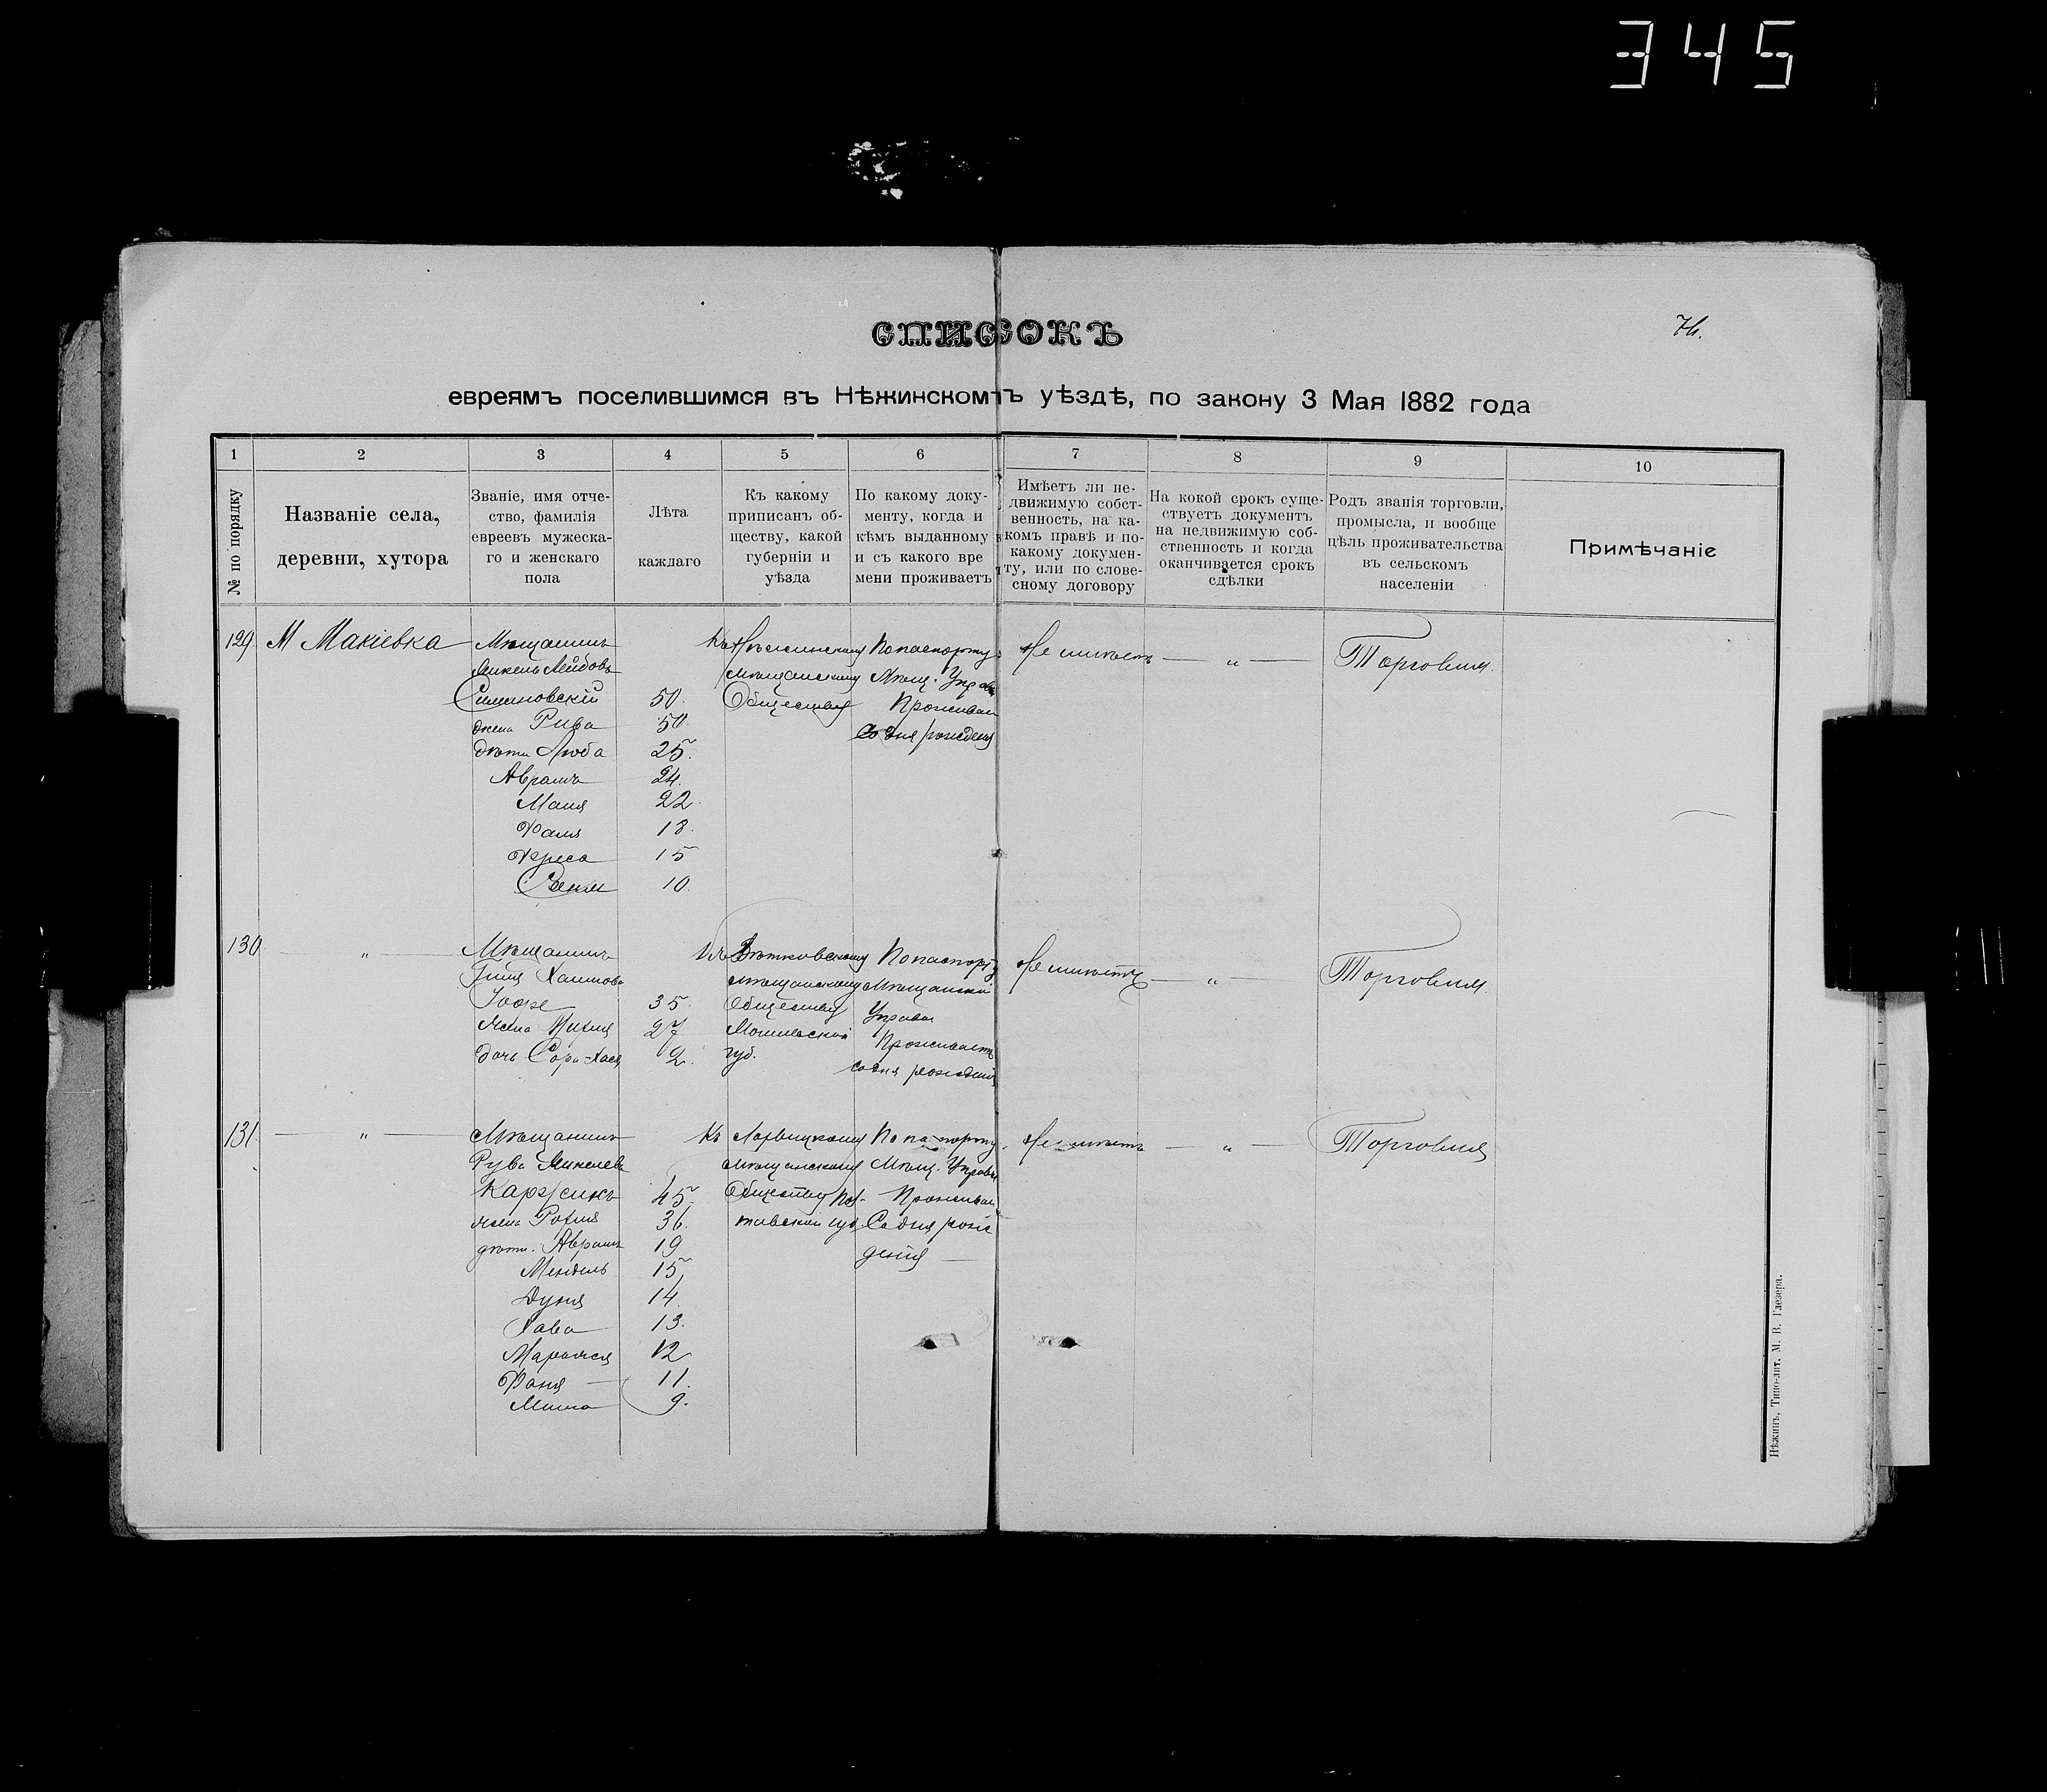 345
74.
СПИСОКЪ
евреямъ поселившимся въ Нѣжинскомъ уѣздѣ, по закону 3 Мая 1882 года
1 2 3 4 5 6 7 8 9 10
№ по порядку
Названіе села,
деревни, хутора
Званіе, имя отче-
ство, фамилія
евреевъ мужеска-
го и женскаго
пола
Лѣта
каждаго
Къ какому
приписанъ об-
ществу, какой
губерніи и
уѣзда
По какому доку-
менту, когда и
кѣмъ выданному
и съ какого вре
мени проживаетъ
Имѣетъ ли не-
движимую собст-
венность, на ка-
комъ правѣ и по-
какому докумен-
ту, или по слове-
сному договору
На кокой срокъ суще-
ствуетъ документъ
на недвижимую соб-
ственность и когда
оканчивается срокъ
сдѣлки
Родъ званія торговли,
промысла, и вообще
цѣль проживательства
въ сельскомъ
населеніи
Примѣчаніе
129. М Макіевка
Мѣщанинъ
Лейбовъ
Симиновскій 50.
жена Рива 50.
дѣти Люба 25.
Аврамъ 24.
Маня 22.
Ханя 18.
Фрейса 15
10.
Къ Нѣжинскому
мѣщанскому
Обществу
По паспорту
Мѣщ. Управы
Проживаетъ
Со дня рожденія
Не имѣетъ — „ — Торговля.
130 — „ —
Мѣщанинъ
Хаимовъ
Іофе 35.
жена 27
дочь Сора-Хася 2.
Къ Вѣтковскому
мѣщанскому
Обществу
Могилевской
губ.
По паспорту
Мѣщанской
Управы
Проживаетъ
со дня рожденія
Не имѣетъ — „ — Торговля.
131. — „ —
Мѣщанинъ
Рува
45.
жена Рохля 36.
дѣти. Аврамъ 19
Мендель 15,
Дуня 14.
Хава 13.
Марьяся 12
Фаня — 11.
Миша 9.
Къ Лохвицкому
мѣщанскому
Обществу Пол-
тавской губ.
По паспорту
Мѣщ. Управы
Проживаетъ
Со дня рож
денія —
Не имѣетъ — „ — Торговля
Нѣжинъ, Типо-лит. М. В. Глезера.